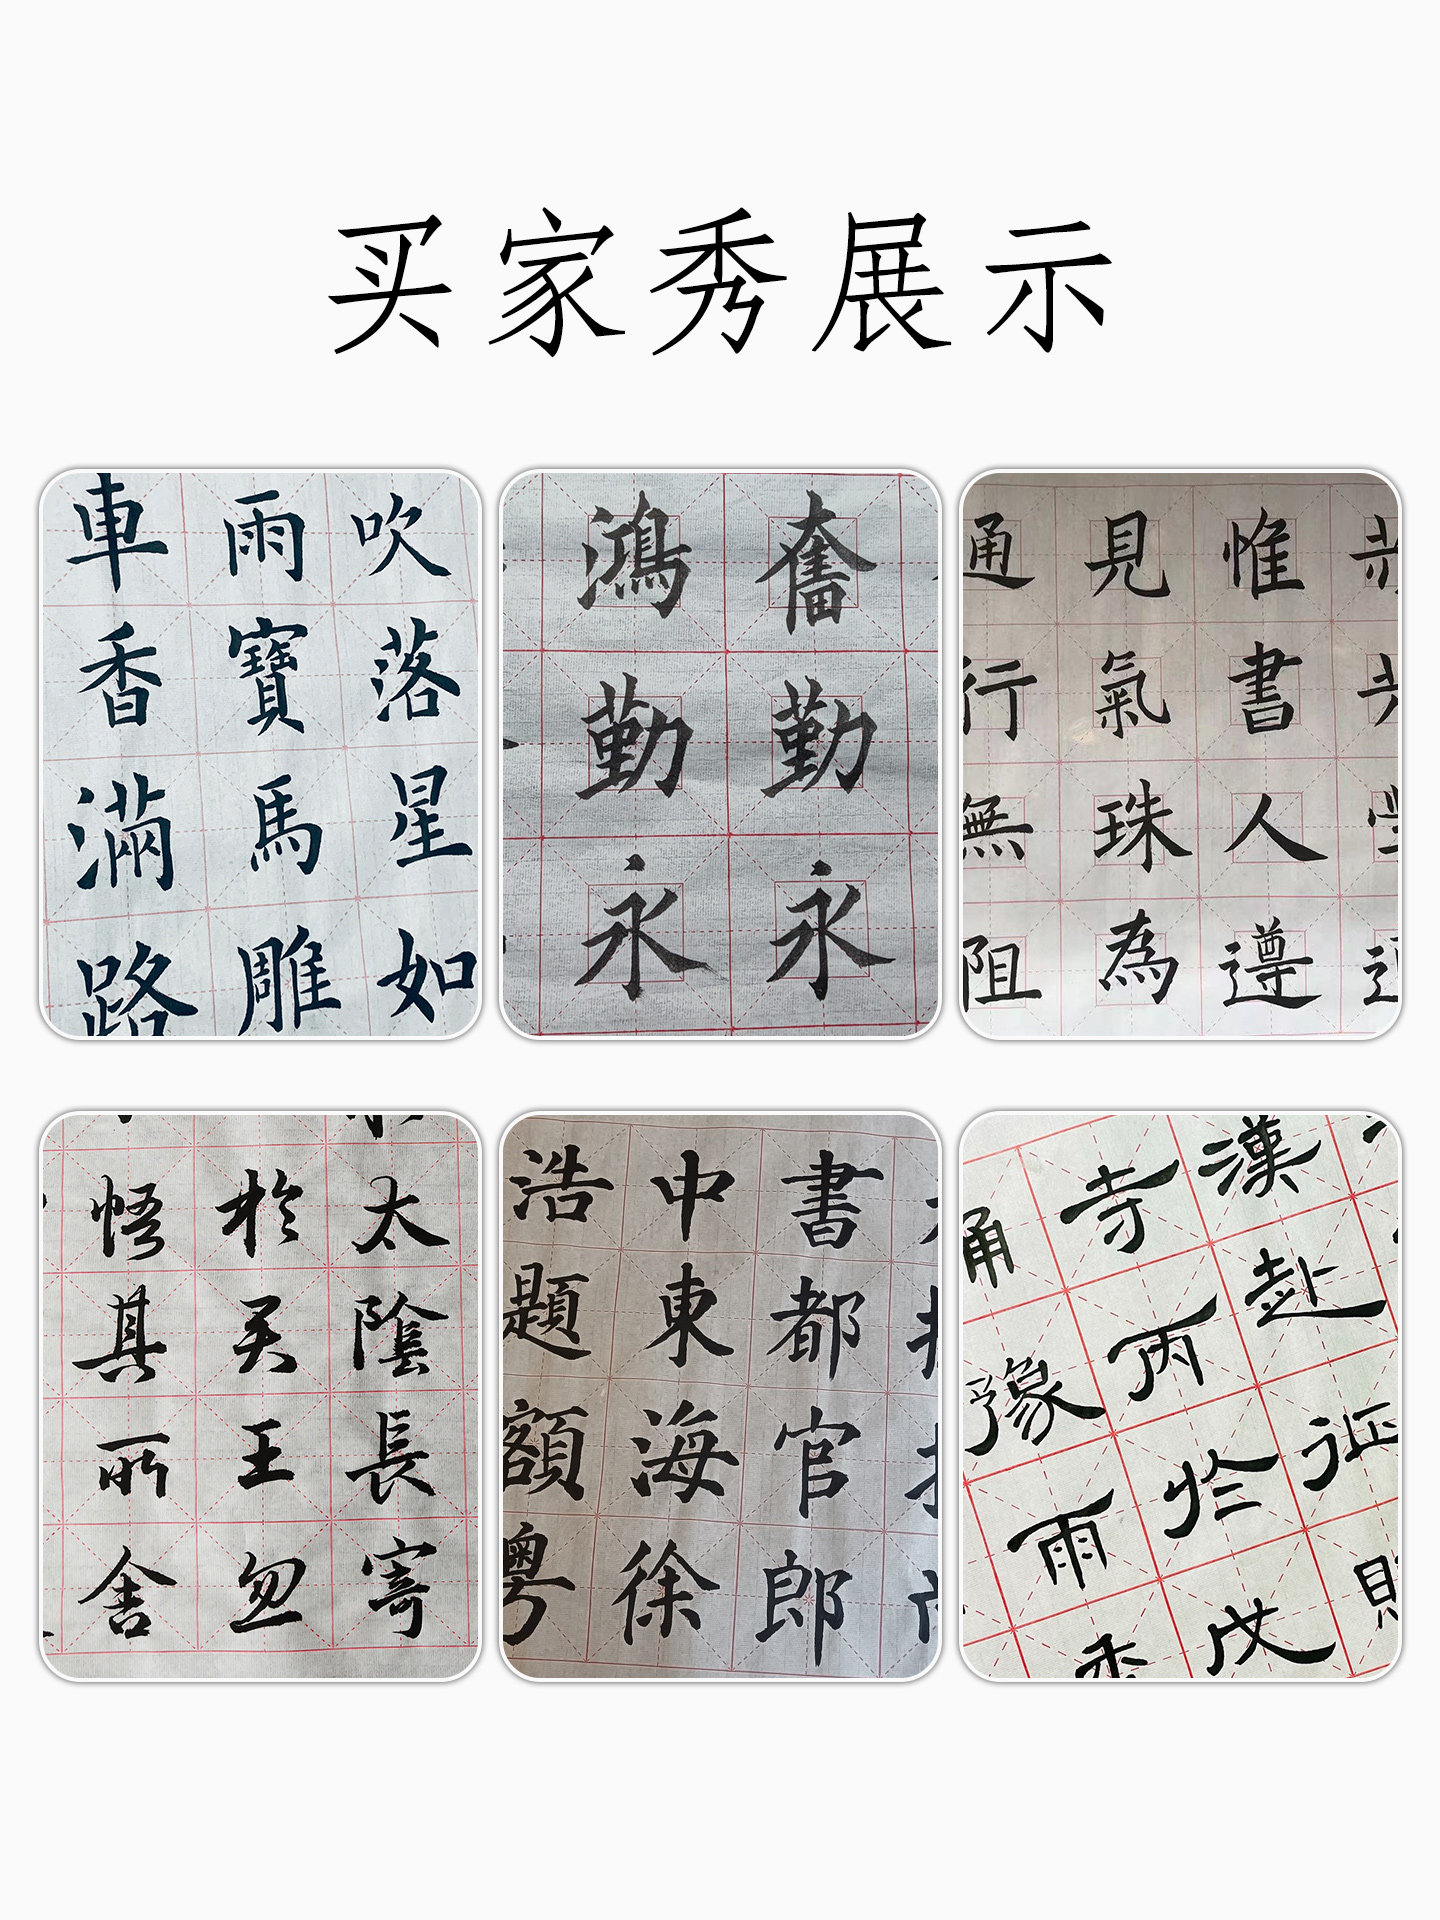 买家秀展示
吹落星如
雨寶馬雕
車香滿路
奮勤永
鴻勤永
惟書人遵
見氣珠為
通行無阻
太陰長寄
於君王忽
悟其所舍
書都官郎
中東海徐
浩題額粵
漢赴征
寺丙於
豫雨